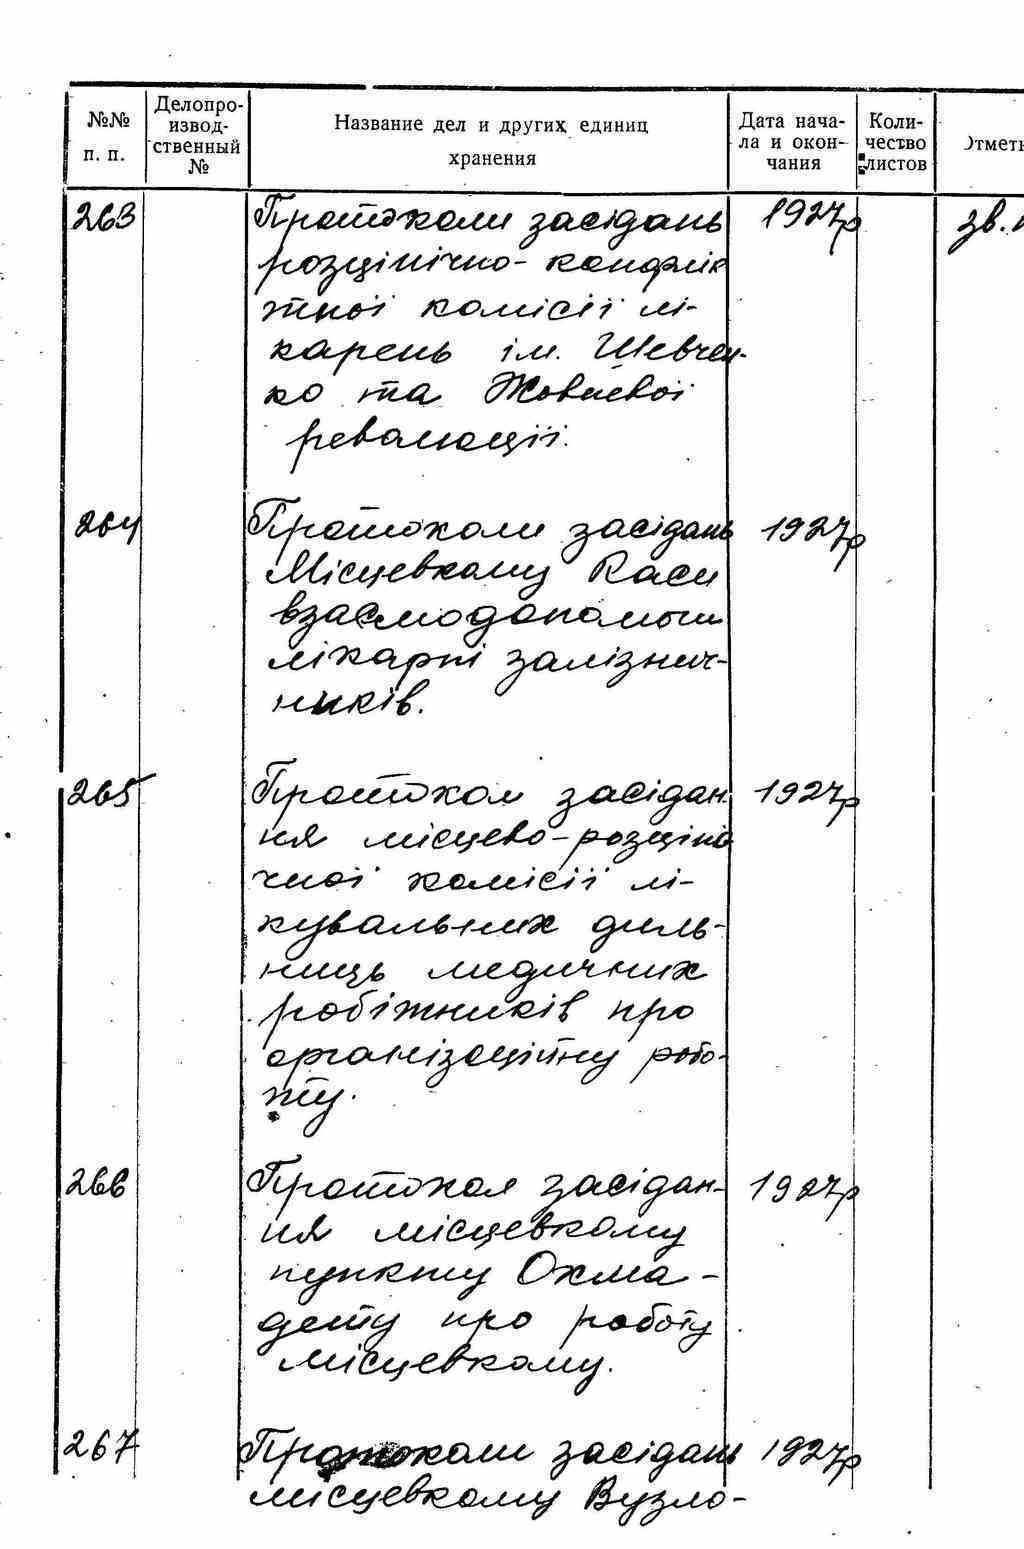 №№ п. п.
Делопро-
извод-
ственный
№
Название дел и других единиц
хранения
Дата нача-
ла и окон-
чания
Коли-
чество
листов
Отметк
263 Протоколи засідань 1927р зв.
розцінічно-конфлік
тної комісії лі-
карень ім. Шевчен-
ко та Жовтевої
революції.
264 Протоколи засідань 1927р
Місцевкому Каси
взаємодопомоги
лікарні залізнич-
ників.
265 Протокол засідан 1927р
ня місцево-розціні
чної комісії лі-
кувальних диль-
ниць медичних
робіжників про
організаційну робо-
ту.
266 Протокол засідан- 1927р
ня місцевкому
пункту Охма-
дету про роботу
місцевкому.
267 Протоколи засідань 1927р
місцевкому Вузло-